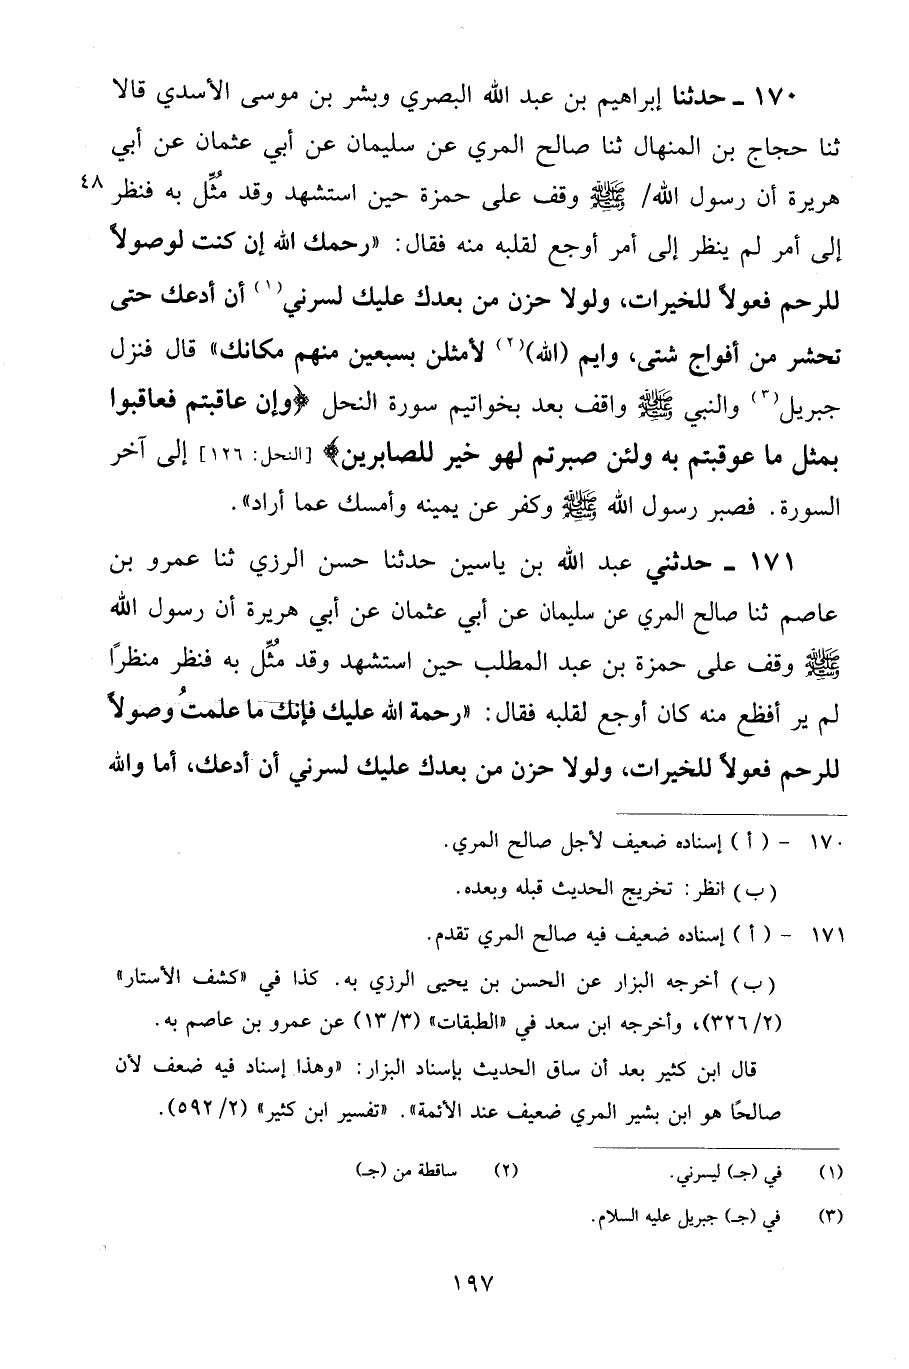 ١٧٠ - حدثنا إبراهيم بن عبد الله البصري وبشر بن موسى الأسدي قالا
ثنا حجاج بن المنهال ثنا صالح المري عن سليمان عن أبي عثمان عن أبي
هريرة أن رسول الله/ ﷺ وقف على حمزة حين استشهد وقد مُثِّل به فنظر ٤٨
إلى أمر لم ينظر إلى أمر أوجع لقلبه منه فقال: «رحمك الله إن كنت لوصولاً
للرحم فعولاً للخيرات، ولولا حزن من بعدك عليك لسرني(١) أن أدعك حتى
تحشر من أفواج شتى، وايم (الله)(٢) لأمثلن بسبعين منهم مكانك» قال فنزل
جبريل(٣) والنبي ﷺ واقف بعد بخواتيم سورة النحل ﴿وإن عاقبتم فعاقبوا
بمثل ما عوقبتم به ولئن صبرتم لهو خير للصابرين﴾ [النحل: ١٢٦] إلى آخر
السورة. فصبر رسول الله ﷺ وكفر عن يمينه وأمسك عما أراد».
١٧١ - حدثني عبد الله بن ياسين حدثنا حسن الرزي ثنا عمرو بن
عاصم ثنا صالح المري عن سليمان عن أبي عثمان عن أبي هريرة أن رسول الله
ﷺ وقف على حمزة بن عبد المطلب حين استشهد وقد مُثِّل به فنظر منظرًا
لم ير أفظع منه كان أوجع لقلبه فقال: «رحمة الله عليك فإنك ما علمتُ وصولاً
للرحم فعولاً للخيرات، ولولا حزن من بعدك عليك لسرني أن أدعك، أما والله
١٧٠ - (أ) إسناده ضعيف لأجل صالح المري.
(ب) انظر: تخريج الحديث قبله وبعده.
١٧١ - (أ) إسناده ضعيف فيه صالح المري تقدم.
(ب) أخرجه البزار عن الحسن بن يحيى الرزي به. كذا في «كشف الأستار»
(٣٢٦/٢)، وأخرجه ابن سعد في «الطبقات» (١٣/٣) عن عمرو بن عاصم به.
قال ابن كثير بعد أن ساق الحديث بإسناد البزار: «وهذا إسناد فيه ضعف لأن
صالحًا هو ابن بشير المري ضعيف عند الأئمة». «تفسير ابن كثير» (٥٩٢/٢).
(١) في (جـ) ليسرني. (٢) ساقطة من (جـ)
(٣) في (جـ) جبريل عليه السلام.
١٩٧